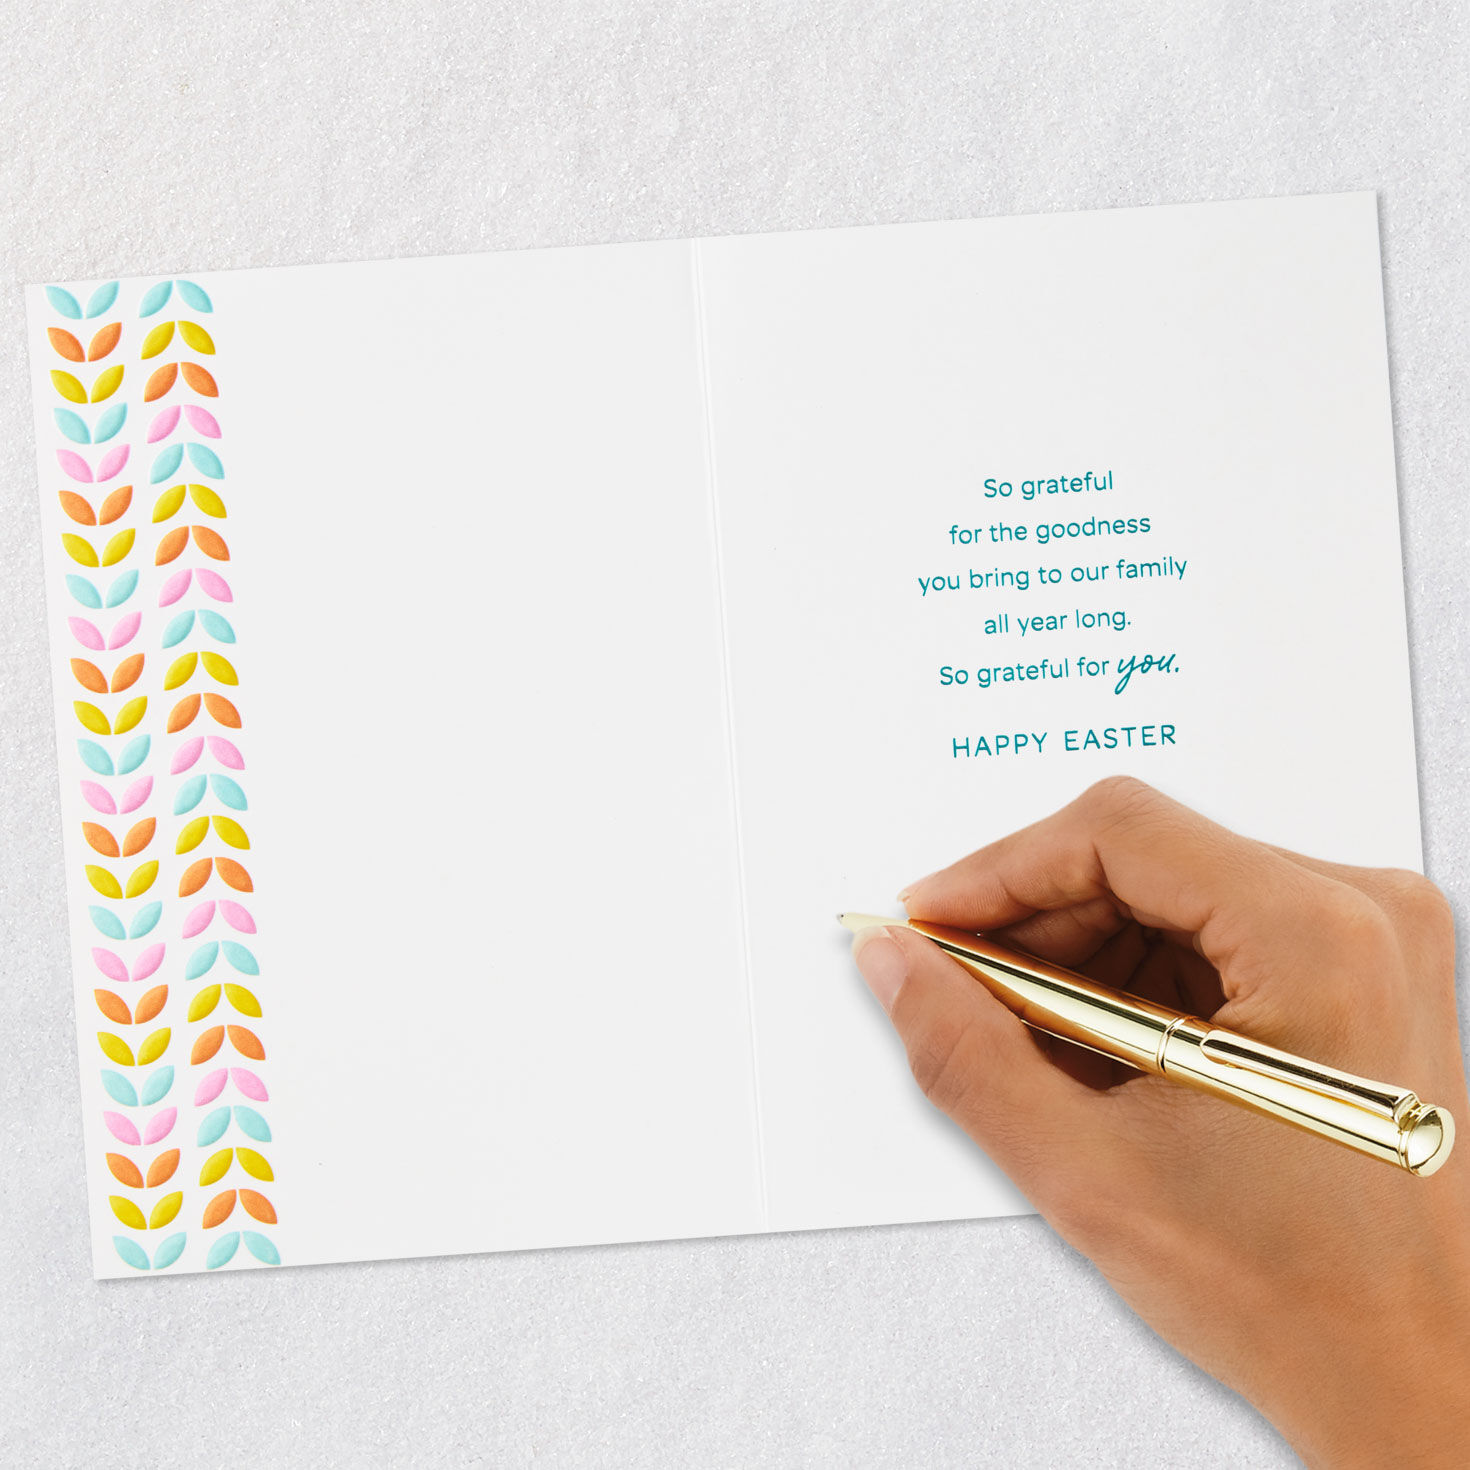 So grateful
for the goodness
you bring to our family
all year long.
So grateful for you.
HAPPY EASTER